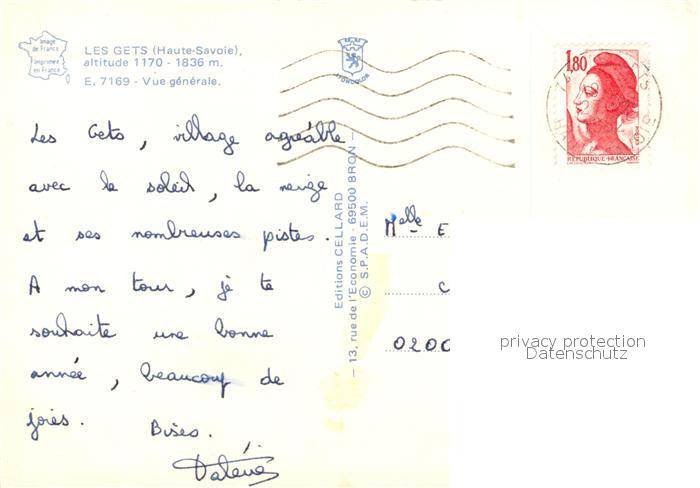 Image
de France
Imprimée
en France
LES GETS (Haute-Savoie),
altitude 1170 - 1836 m.
E. 7169 - Vue générale.
Les Gets, village agréable
avec le soleil, la neige
et ses nombreuses pistes.
A mon tour, je te
souhaite une bonne
année, beaucoup de
joies. Bises.
Editions CELLARD
— 13, rue de l'Economie - 69500 BRON —
© S.P.A.D.E.M.
1,80
REPUBLIQUE FRANÇAISE
Melle E
C
0200
privacy protection
Datenschutz